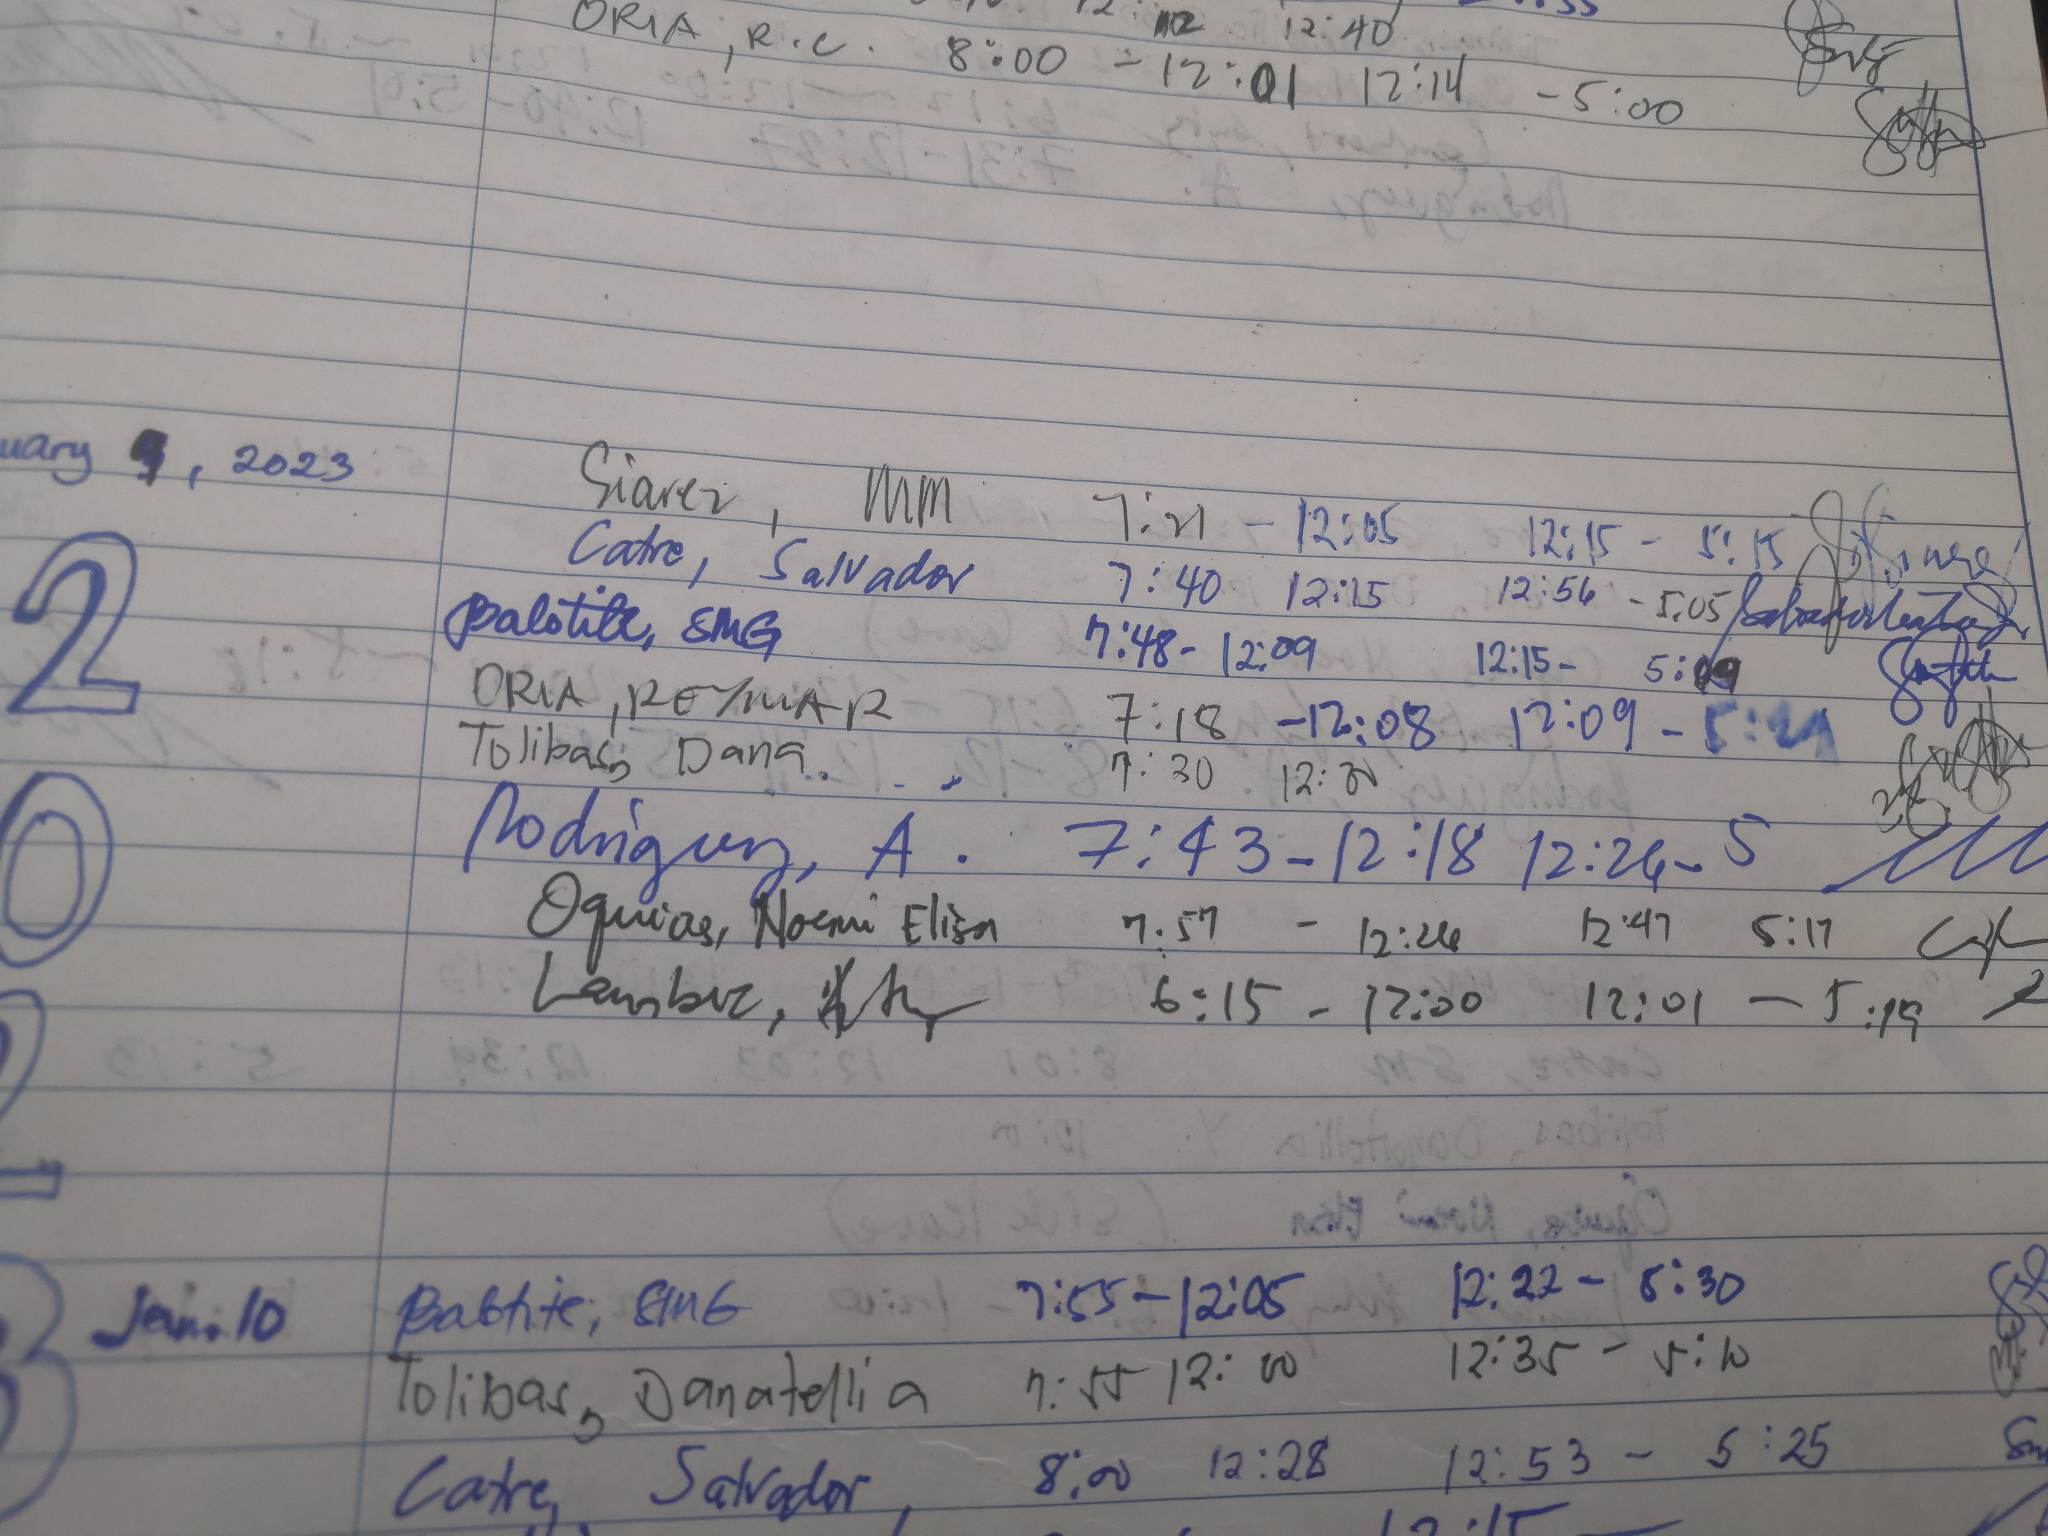 12:40
ORIA, R.C. 8:00 - 12:01 12:14 - 5:00
uary 9, 2023
Siarez, MM 7:21 - 12:05 12:15 - 5:15
Catre, Salvador 7:40 12:15 12:56 - 5:05
Balotite, SMG 7:48 - 12:09 12:15 - 5:09
ORIA, REYMAR 7:18 - 12:08 12:09 - 5:21
Tolibas, Dana. 7:30 12:00
Rodriguez, A. 7:43 - 12:18 12:26 - 5
Oquias, Noemi Eliza 7:57 - 12:26 12:47 5:17
6:15 - 12:00 12:01 - 5:19
2
0
2
3
Jan. 10 Balotite, SMG 7:55 - 12:05 12:22 - 5:30
Tolibas, Danatellia 7:55 12:00 12:35 - 5:10
Catre, Salvador, 8:00 12:28 12:53 - 5:25
12:15 -